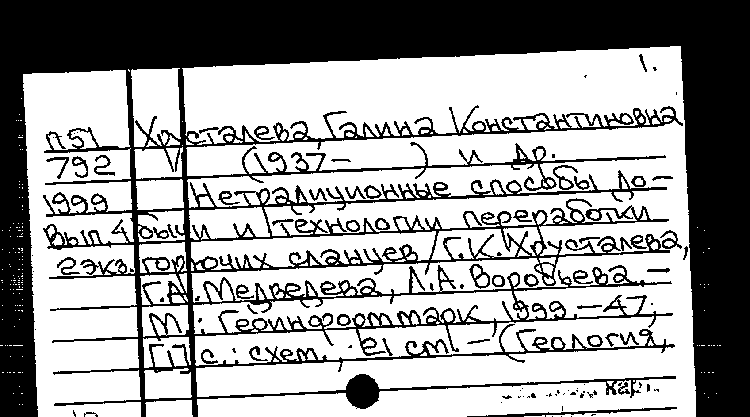 1.
п51 Хрусталева, Галина Константиновна
792 (1937- ) и др.
1999 Нетрадиционные способы до-
Вып. 4 бычи и технологии переработки
2 экз. горючих сланцев / Г.К. Хрусталева,
Г.А. Медведева, Л.А. Воробьева. —
М.: Геоинформмарк, 1999. — 47,
[1] с.: схем.; 21 cm. — (Геология,
карт.